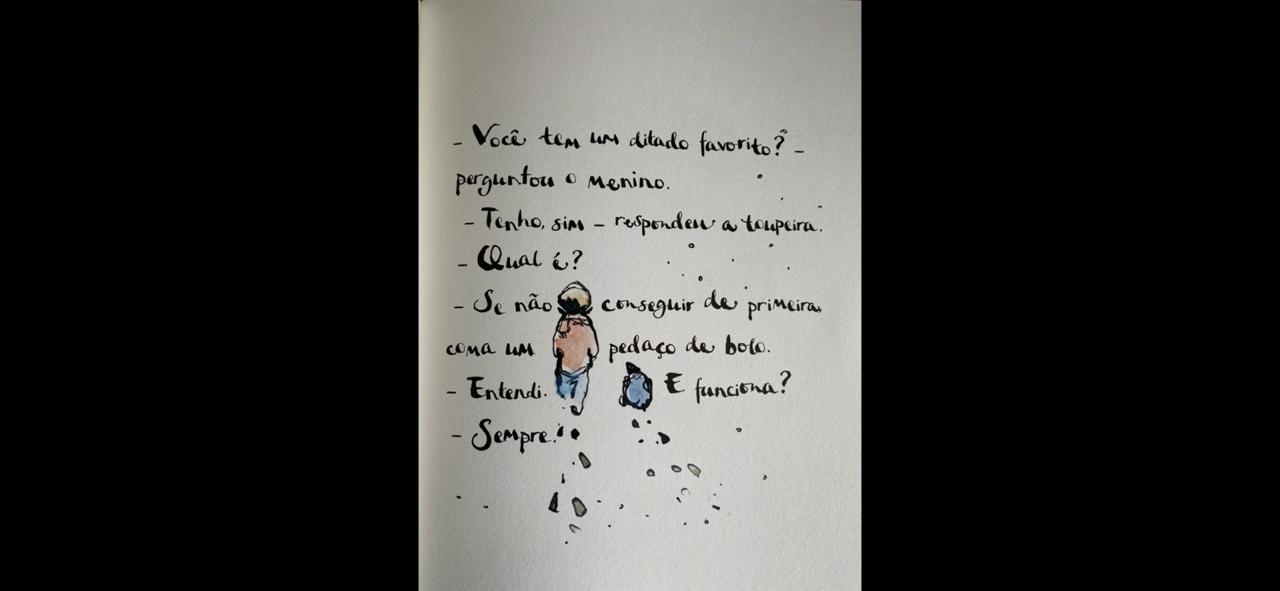 - Você tem um ditado favorito? -
perguntou o menino.
- Tenho, sim - respondeu a toupeira.
- Qual é?
- Se não conseguir de primeira,
coma um pedaço de bolo.
- Entendi. E funciona?
- Sempre.